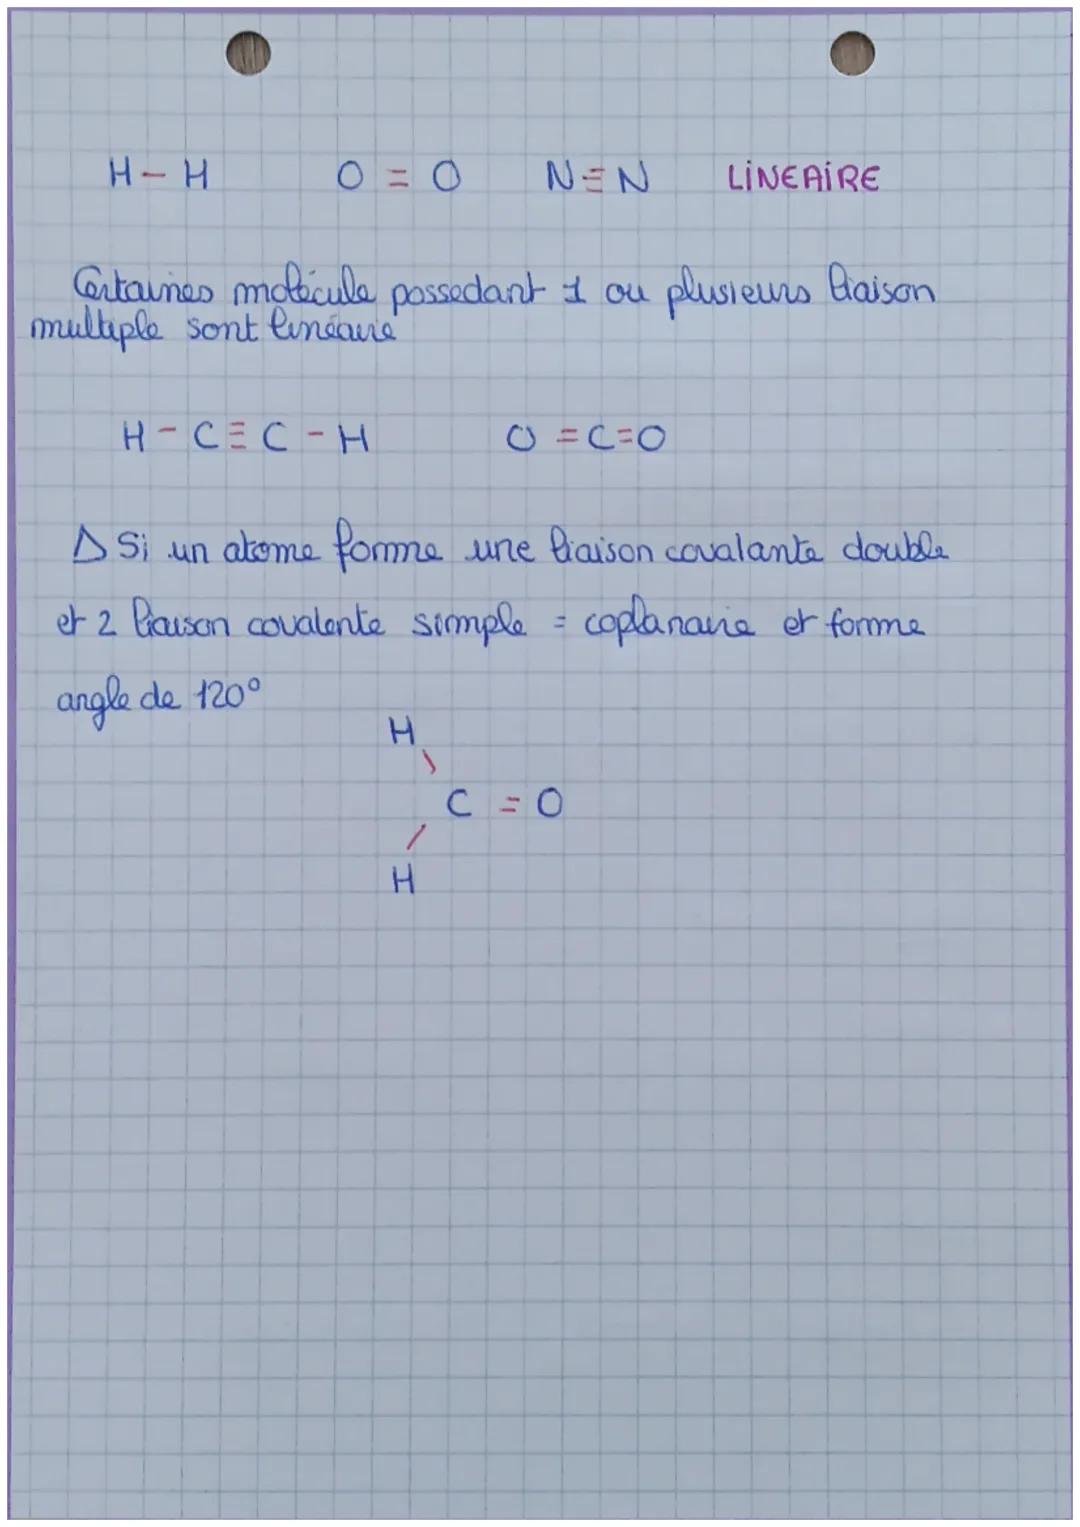 H - H O = O N ≡ N LINEAIRE
Certaines molécule possedant 1 ou plusieurs liaison
multiple sont linéaire
H - C ≡ C - H O = C = O
△ Si un atome forme une liaison covalante double
et 2 liaison covalente simple = coplanaire et forme
angle de 120°
H
\
C = O
/
H